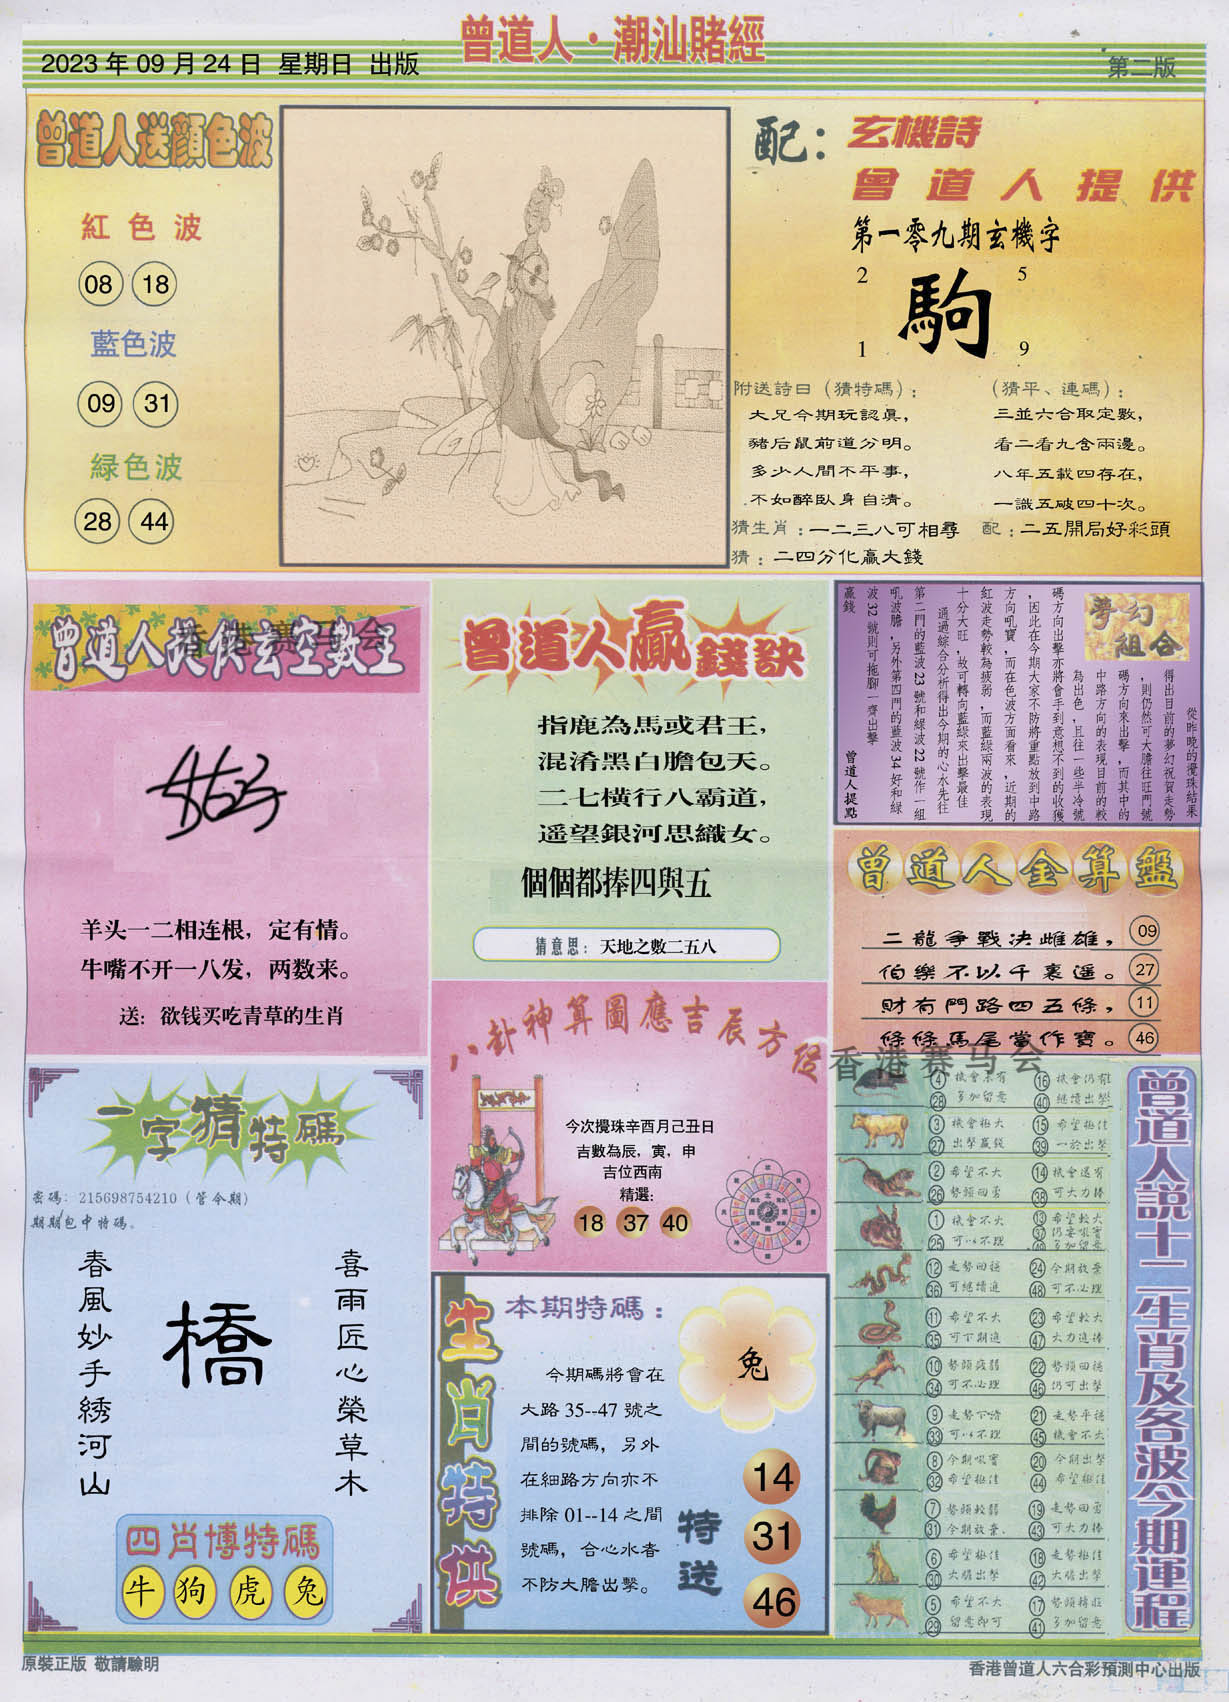 曾道人·潮汕賭經
2023 年 09 月 24 日 星期日 出版
第二版
曾道人送顔色波
紅色波
08 18
藍色波
09 31
緑色波
28 44
配：
玄機詩
曾道人提供
第一零九期玄機字
2 5
駒
1 9
附送詩曰（猜特碼）：
大兄今期玩認眞，
豬后鼠前道分明。
多少人間不平事，
不如醉臥身自清。
（猜平、連碼）：
三並六合取定數，
看二看九含兩邊。
八年五載四存在，
一識五破四十次。
猜生肖：一二三八可相尋
配：二五開局好彩頭
猜：二四分化贏大錢
曾道人提供玄空數王
香港赛马会
羊头一二相连根，定有情。
牛嘴不开一八发，两数来。
送：欲钱买吃青草的生肖
曾道人贏錢訣
指鹿為馬或君王，
混淆黑白膽包天。
二七橫行八霸道，
遥望銀河思織女。
個個都捧四與五
猜意思：天地之數二五八
夢幻組合
從昨晚的攪珠結果
得出目前的夢幻祝賀走勢
，則仍然可大膽往旺門號
碼方向來出擊，而其中的
中路方向的表現目前的較
為出色，且往一些半冷號
碼方向出擊亦將會手到意想不到的收獲
，因此在今期大家不防將重點放到中路
方向吼寶，而在色波方面看來，近期的
紅波走勢較為疲弱，而藍綠兩波的表現
十分大旺，故可轉向藍綠來出擊最佳
通過綜合分析得出今期的心水先往
第二門的藍波 23 號和綠波 22 號作一組
吼波膽，另外第四門的藍波 34 好和綠
波 32 號則可拖腳一齊出擊
贏錢
曾道人提點
曾道人金算盤
二龍争戰决雌雄， 09
伯樂不以千裏遥。 27
財有門路四五條， 11
條條馬尾當作寶。 46
香港赛马会
八卦神算圖應吉辰方位
今次攪珠辛酉月己丑日
吉數為辰，寅，申
吉位西南
精選：
18 37 40
一字猜特碼
密碼：215698754210（管今期）
期期包中特碼。
喜雨匠心榮草木
橋
春風妙手綉河山
四肖博特碼
牛 狗 虎 兔
生肖特供
本期特碼：
兔
今期碼將會在
大路 35--47 號之
間的號碼，另外
在細路方向亦不
排除 01--14 之間
號碼，合心水者
不防大膽出擊。
特送
14
31
46
曾道人説十二生肖及各波今期運程
4 28 機會未有 多加留意
16 40 機會仍有 繼續出擊
3 27 機會極大 出擊贏錢
15 39 希望極佳 一於出擊
2 26 希望不大 勢頭回勇
14 38 機會還有 可大力捧
1 25 機會不大 可以不理
13 37 49 希望較大 仍要吼寶 多加留意
12 36 走勢回穩 可繼續追
24 48 今期放棄 可不必理
11 35 希望不大 可下期追
23 47 希望較大 大力追捧
10 34 勢頭疲弱 可不必理
22 46 勢頭回穩 仍可出擊
9 33 走勢下滑 可以不理
21 45 走勢平穩 機會不大
8 32 今期吼寶 希望極佳
20 44 今期出擊 希望極佳
7 31 勢頭較弱 今期放棄
19 43 走勢回勇 可大力捧
6 30 希望極佳 大膽出擊
18 42 走勢極佳 大膽出擊
5 29 希望不大 留意即可
17 41 勢頭轉旺 多加留意
原裝正版 敬請驗明
香港曾道人六合彩預測中心出版